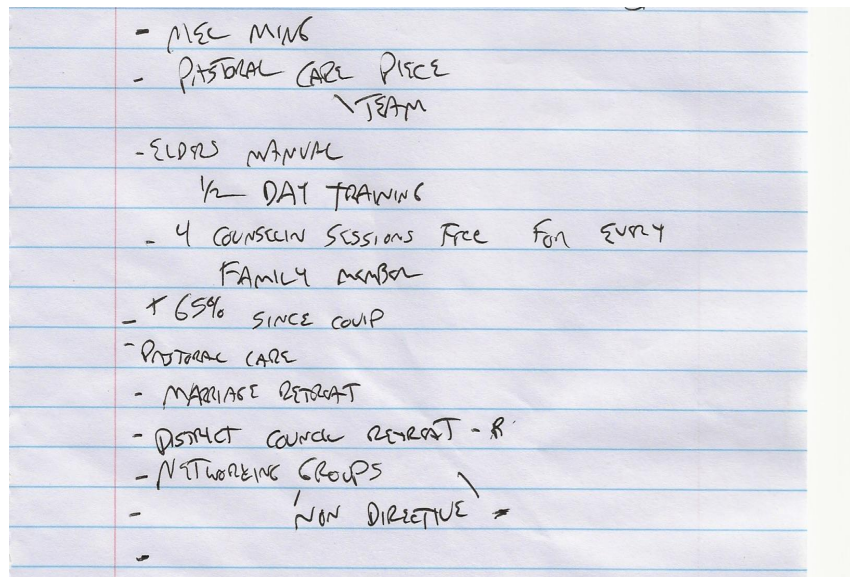 - MEC MING
- PASTORAL CARE PIECE
\ TEAM
- ELDERS MANUAL
1/2 DAY TRAINING
- 4 COUNSELIN SESSIONS FREE FOR EVERY
FAMILY MEMBER
- + 65% SINCE COVID
- PASTORAL CARE
- MARRIAGE RETREAT
- DISTRICT COUNCIL RETREAT -
- NETWORKING GROUPS
/ NON DIRECTIVE \ -
-
-